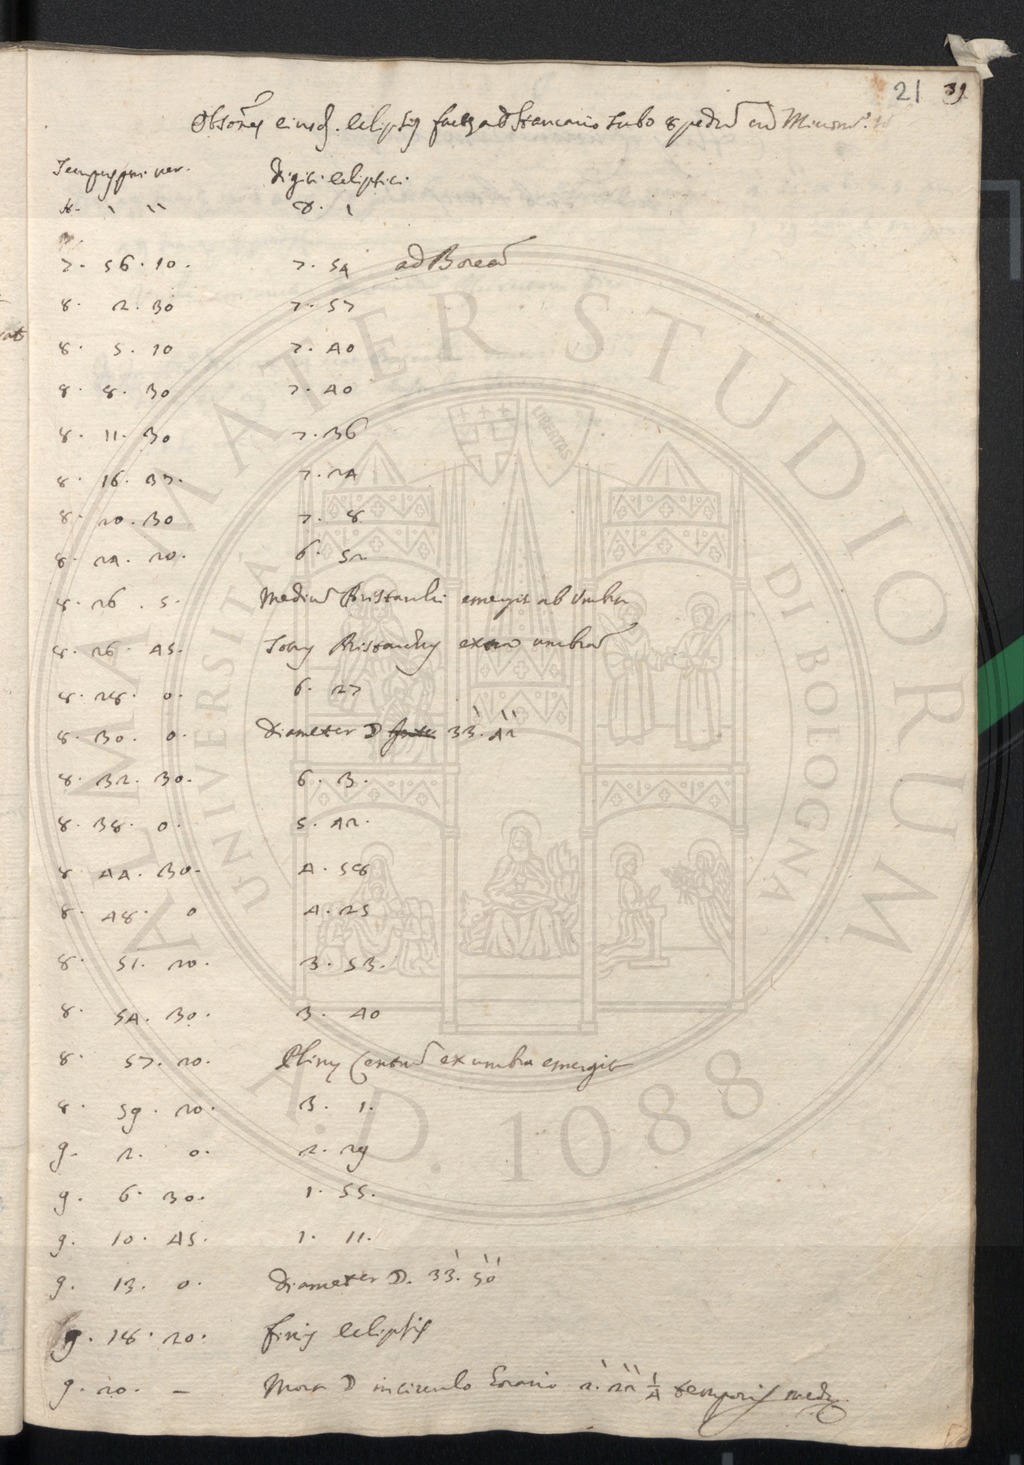 21 39
Obsōnes eiusd. eclipsis factæ a D. Stancario tubo 8 pedū cū Micromo.
Tempus pm. ver. Digiti ecliptici
H. ` `` D. `
7. 56. 10. 7. 54 ad Boreā
8. 2. 30 7. 57
8. 5. 10 7. 40
8. 8. 30 7. 40
8. 11. 30 7. 36
8. 16. 37. 7. 24
8. 20. 30 7. 8
8. 24. 20. 6. 52
8. 26. 5. Mediū Aristarchi emergit ab umbra
8. 26. 45. Totus Aristarchus extra umbrā
8. 28. 0. 6. 27
8. 30. 0. Diameter D 33. 42
8. 32. 30. 6. 3.
8. 38. 0. 5. 42.
8. 44. 30. 4. 58
8. 48. 0 4. 25
8. 51. 20. 3. 53.
8. 54. 30. 3. 40
8. 57. 20. Plinius exactus ex umbra emergit
8. 59. 20. 3. 1.
9. 2. 0. 2. 29
9. 6. 30. 1. 55.
9. 10. 45. 1. 11.
9. 13. 0. Diameter D. 33. 50
9. 18. 20. finis eclipsis
9. 20. – Mora D in circulo horario 2. 22 1/4 temporis medii
ALMA MATER STUDIORUM
UNIVERSITÀ DI BOLOGNA
LIBERTAS
A.D. 1088